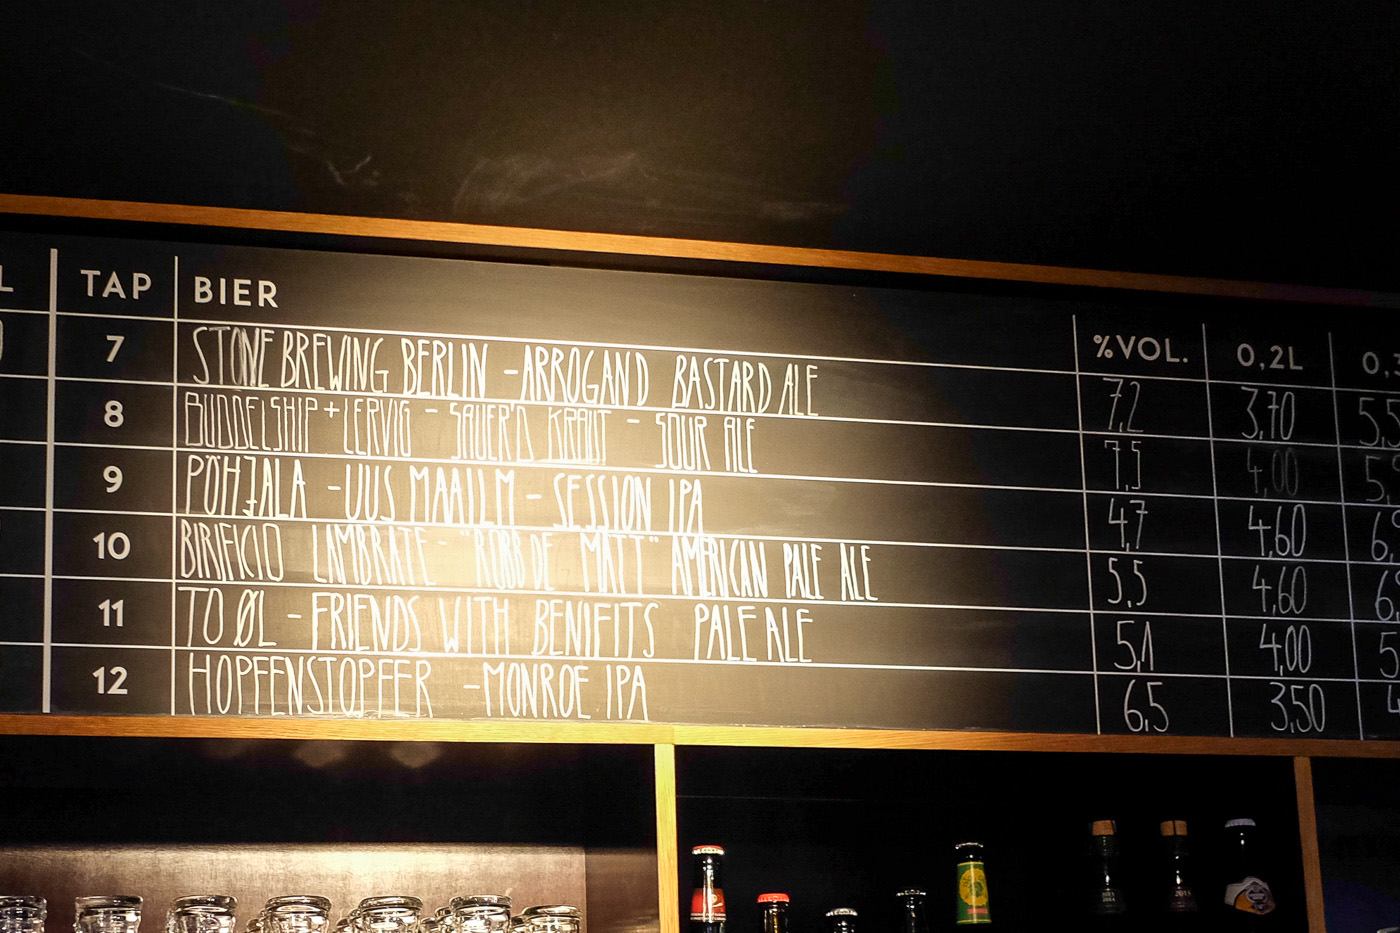 L TAP BIER %VOL. 0,2L 0,3
7 STONE BREWING BERLIN - ARROGAND BASTARD ALE 7,2 3,70 5,5
8 BUDDELSHIP + LERVIG - SAUER'D KRAUT - SOUR ALE 7,5 4,00 5,
9 PÖHJALA - UUS MAAILM - SESSION IPA 4,7 4,60 6
10 BIRIFICIO LAMBRATE - "ROBB DE MATT" AMERICAN PALE ALE 5,5 4,60 6
11 TO ØL - FRIENDS WITH BENIFITS PALE ALE 5,1 4,00 5
12 HOPFENSTOPFER - MONROE IPA 6,5 3,50 4